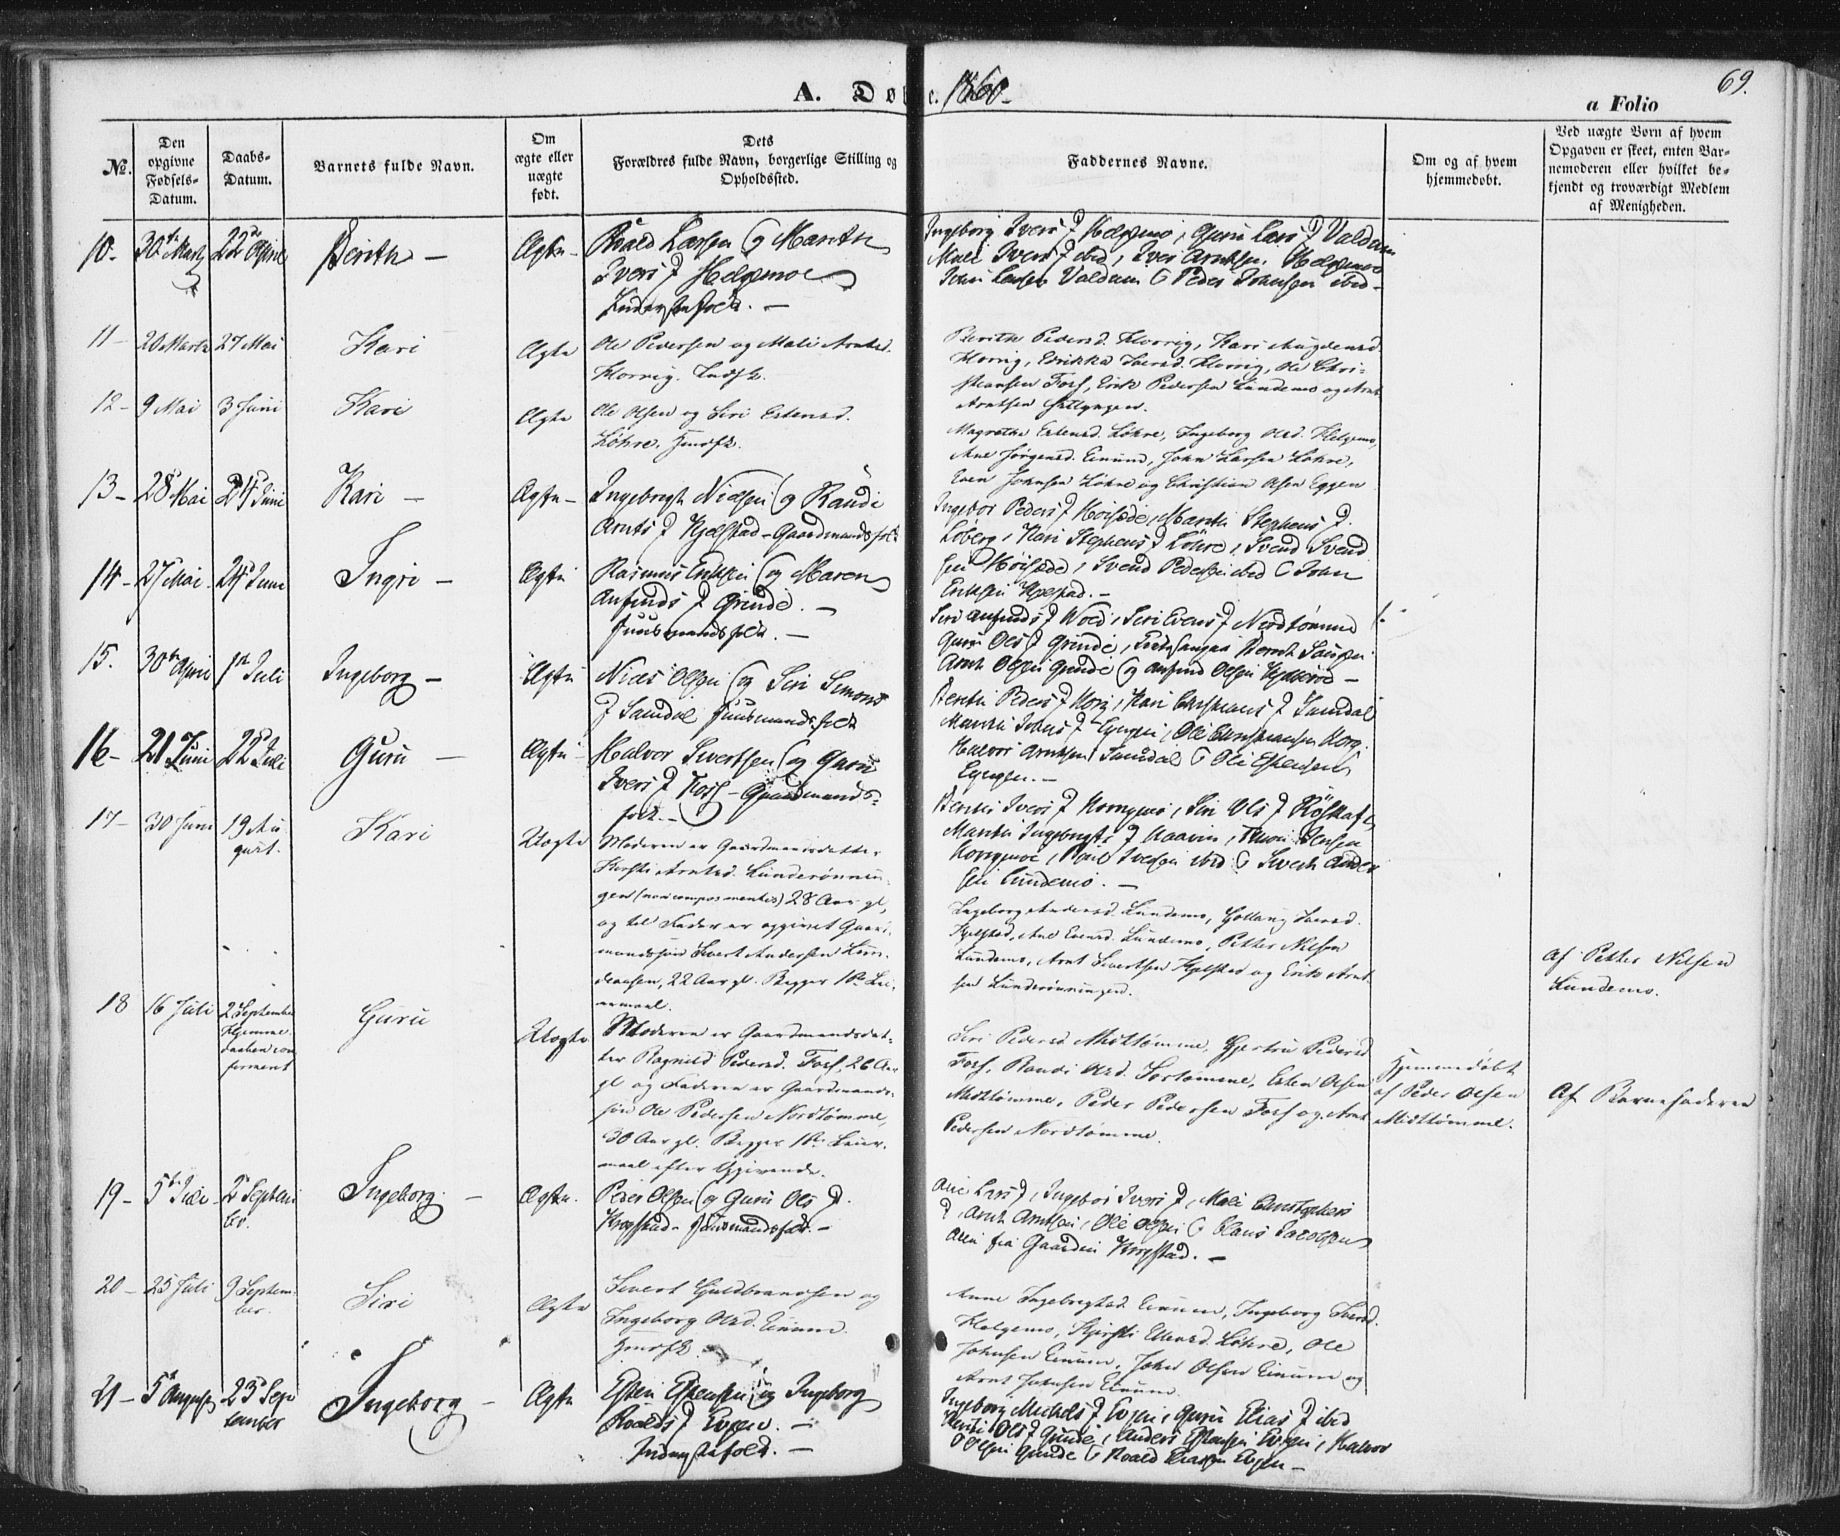 A. Døbte. 1860.
69.
a Folio
№.
Den opgivne Fødsels-Datum.
Daabs-Datum.
Barnets fulde Navn.
Om ægte eller uægte født.
Dets Forældres fulde Navn, borgerlige Stilling og Opholdssted.
Faddernes Navne.
Om og af hvem hjemmedøbt.
Ved uægte Børn af hvem Opgaven er skeet, enten Barnemoderen eller hvilket bekjendt og troværdigt Medlem af Menigheden.
10-
30te Marts
22de April
Berith -
Ægte -
Roald Larsen og Marith
Ivers D Helgemoe
Inderstefolk. -
Ingeborg Ivers D Helgemo, Guru Lars D Valdum
Mali Ivers D ibid, Iver Arntsen Helgemoe
Larsen Valdum & Peder Johnsen ibid -
11-
20 Marts
27 Mai
Kari
Ægte
Ole Pedersen og Mali Arntsd.
Horrig. Indsf.
Berith Pedersd. Horrig, Kari
Horrig, Horrig, Ole Chri-
stiansen Fors, Erik Pedersen Lundemo og Arnt
Arntsen
12-
9 Mai
3 Juni
Kari
Ægte
Ole Olsen og Siri Estensd.
Løhre. Huusf.
Magrethe Estensd. Løhre, Ingeborg Olsd. Helgemo,
Ane Jørgensd. Einum, John Larsen Løhre,
Even Johnsen Løhre og Christian Olsen Eggen
13-
28 Mai
24 Juni
Kari -
Ægte -
Ingebregt Nielsen og Randi
Arnts D Kjelstad - Gaardmandsfolk
Peders D Marith Stephens D
Løberg, Kari Stephens D Løhre, Svend Svend
sen Svend Pedersen ibid & John
Eriksen Kjelstad. -
14-
27 Mai
24 Juni
Ingri -
Ægte
Rasmus Eriksen og Maren
Anfinds D Grinde. -
Huusmandsfolk. -
Siri Anfinds D Wold, Siri Evens D Nordtømme
Guru Ols D Grinde, Berndt
Arnt Olsen Grinde og Anfind Olsen
15.
30te April
1ste Juli
Ingeborg -
Ægte
Niels Olsen og Siri Simons
D Samdal Huusmandsfolk
Berith Peders D Korg, Kari Christians D Samdal
Marith D Ole Christiansen Korg
Halvor Arntsen Samdal & Ole Estensen
16-
21 Juni
22de Juli
Guru -
Ægte -
Halvor Sivertsen og Guru
Ivers D Fors - Gaardmands-
folk. -
Berith Ivers D Siri Ols D
Marith Ingebregts D Jensen
Sivert Ander
sen Lundemo. -
17-
30 Juni
19 Au-
gust.
Kari
Uægte
Moderen er Gaardmandsdatter
Kirsti Arntsd. Lunderønnin-
gen (non compos mentis) 28 Aar gl,
og til Fader er opgivet Gaard-
mandssøn Sivert Andersen
22 Aar gl. Begges 1ste Lei-
ermaal.
Ingeborg Andersd. Lundemo,
Kjelstad, Ane Evensd. Lundemo, Petter Nilsen
Lundemo, Arnt Sivertsen Kjelstad og Erik Arnt-
sen Lunderønningen.
Af Petter Nilsen
Lundemo.
18
16 Juli
2 September
Hjemme-
daaben con-
firmeret
Guru
Uægte
Moderen er Gaardmandsdat-
ter Ragnild Pedersd. Fors, 26 Aar
gl og Faderen er Gaardmands-
søn Ole Pedersen Nordtømme,
30 Aar gl. Begges 1ste Leier-
maal efter Opgivende.
Siri Pedersd Midttømme, Gjertru Pedersd
Fors, Randi Olsd. Sørtømme, Esten Olsen
Midttømme, Peder Pedersen Fors og Arnt
Pedersen Nordtømme.
Hjemmedøbt
af Peder Olsen
Midttømme.
Af Barnefaderen
19-
5te Juli
2den Septem
ber.
Ingeborg -
Ægte.
Peder Olsen og Guru Ols D.
Krogstad - Huusmandsfolk. -
Lars D, Ivers D, Mali Christophers
D, Arnt Arntsen, Ole Olsen & Claus Jacobsen
Alle fra Gaarden Krogstad. -
20-
25 Juli
9 Septem-
ber.
Siri
Ægte
Sivert Guldbrandsen og
Ingeborg Olsd. Einum.
Huusf.
Anne Ingebrigtsd. Einum, Ingeborg
Helgemo, Kjersti Ellensd. Løhre, Ole
Johnsen Einum, John Olsen Einum og
Arnt Johnsen Einum.
21-
5te August
23de Sep-
tember
Ingeborg -
Ægte
Esten Estensen og Ingeborg
Roalds D Evjen. -
Inderstefolk. -
Ingeborg Michels D Evjen, Guru Elias D ibid
Ols D Grinde, Anders Estensen Evjen, Halvor
Olsen Grinde & Roald Evjen -